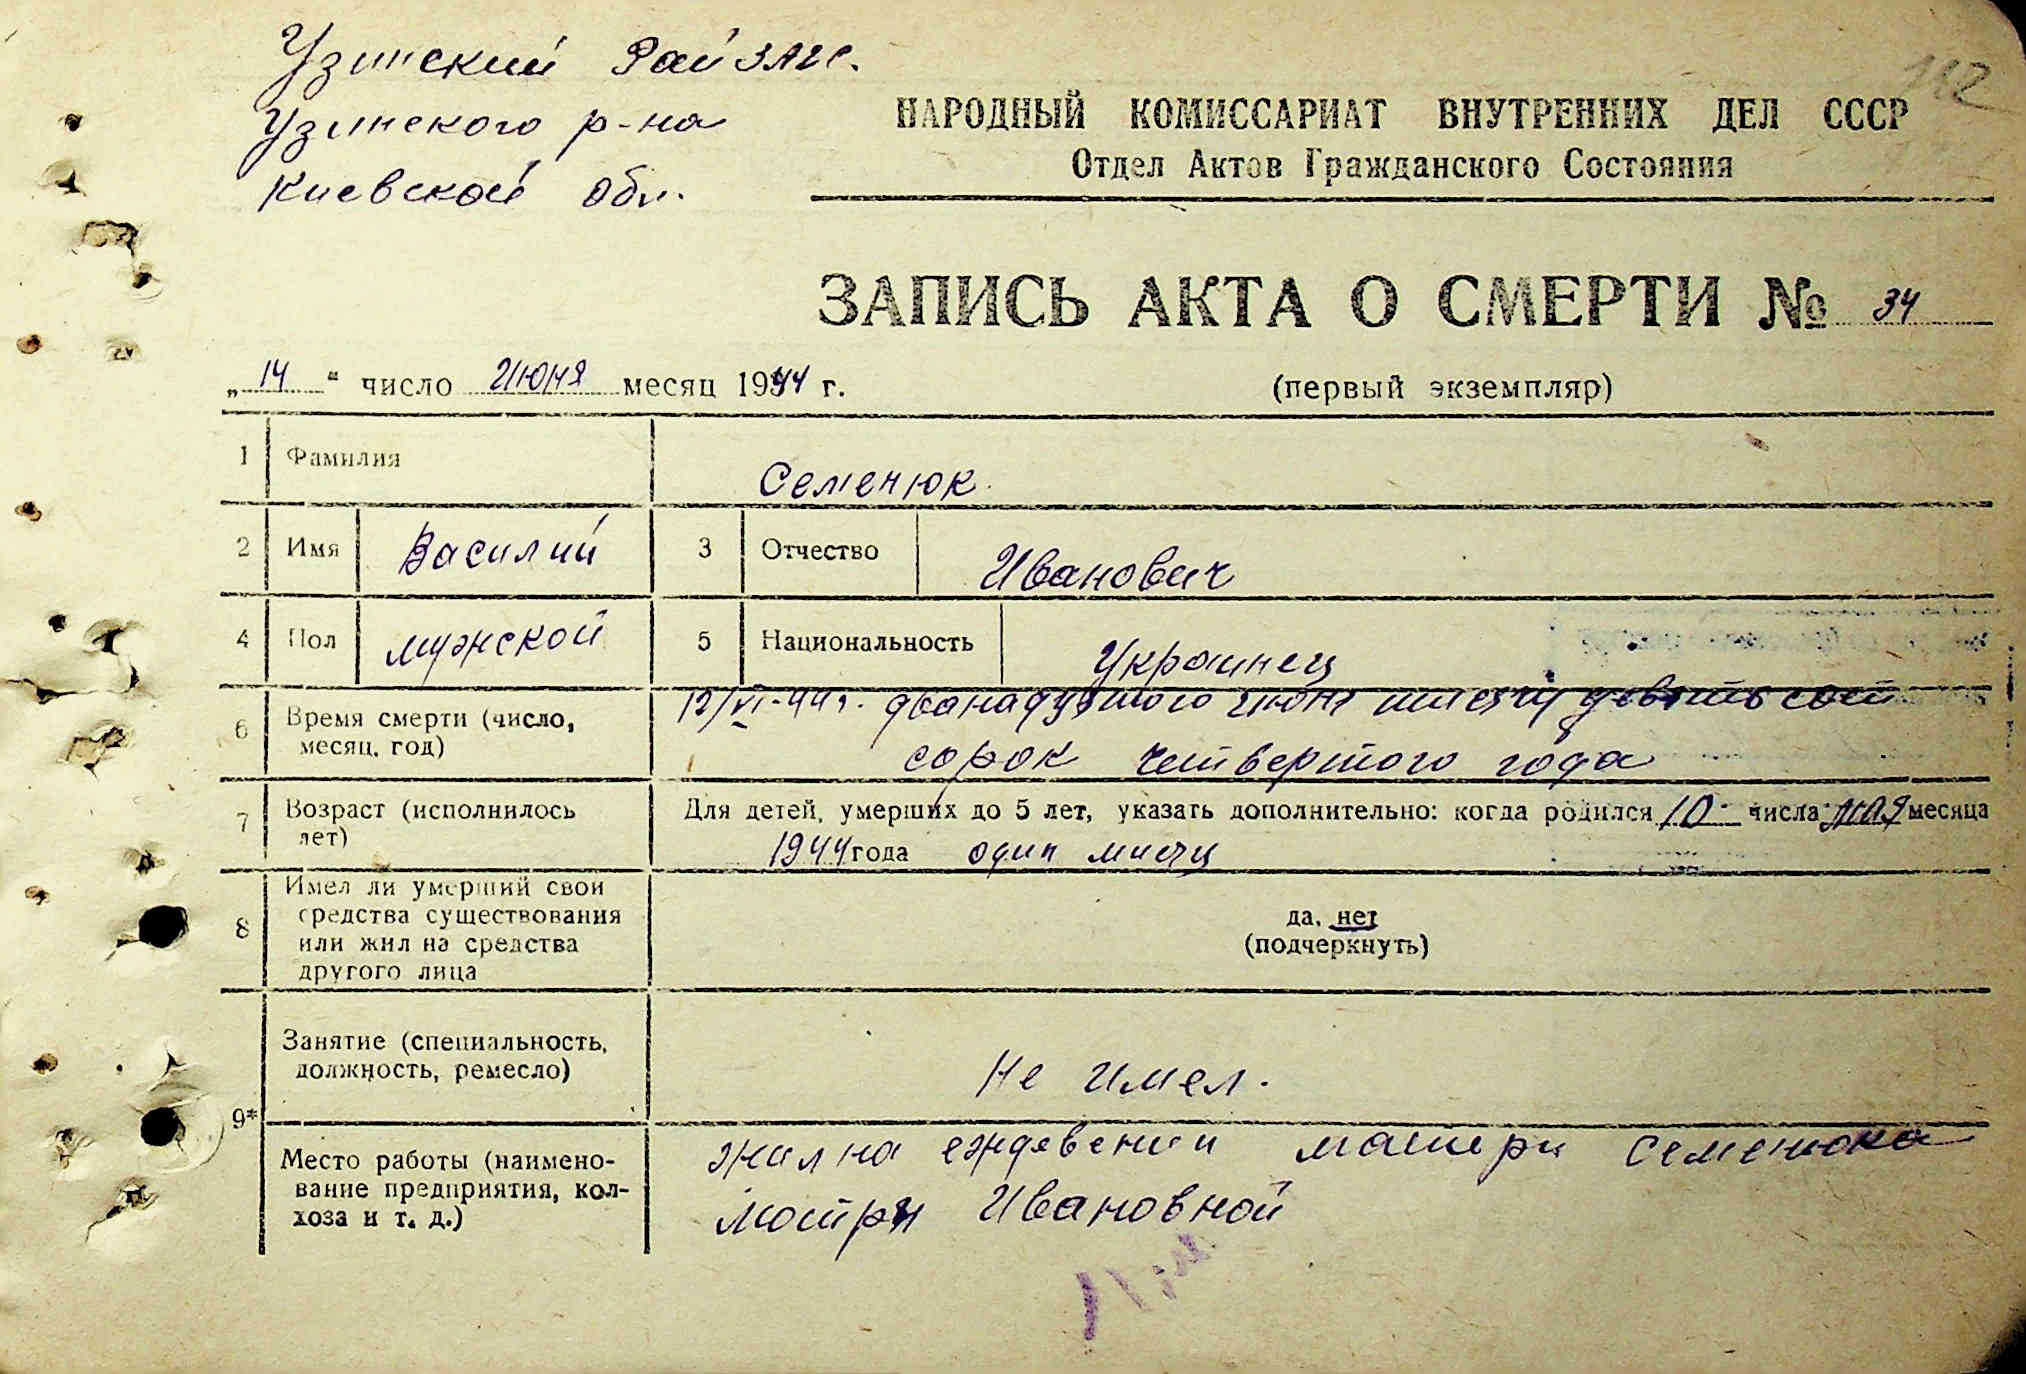 Узинский РайЗАГС.
Узинского р-на
Киевской обл.
112
НАРОДНЫЙ КОМИССАРИАТ ВНУТРЕННИХ ДЕЛ СССР
Отдел Актов Гражданского Состояния
ЗАПИСЬ АКТА О СМЕРТИ № 34
„14“ число Июня месяц 1944 г.
(первый экземпляр)
1 Фамилия Семенюк
2 Имя Василий 3 Отчество Иванович
4 Пол мужской 5 Национальность Украинец
6 Время смерти (число, месяц, год) 12/VI-44г. двенадцатого июня тысячу девятьсот
сорок четвертого года
7 Возраст (исполнилось лет) Для детей, умерших до 5 лет, указать дополнительно: когда родился 10 числа мая месяца
1944 года один месяц
8 Имел ли умерший свои
средства существования
или жил на средства
другого лица
да, нет
(подчеркнуть)
9* Занятие (специальность,
должность, ремесло)
Не имел.
Место работы (наимено-
вание предприятия, кол-
хоза и т. д.)
жил на еждевении матери Семенюка
Мотри Ивановной